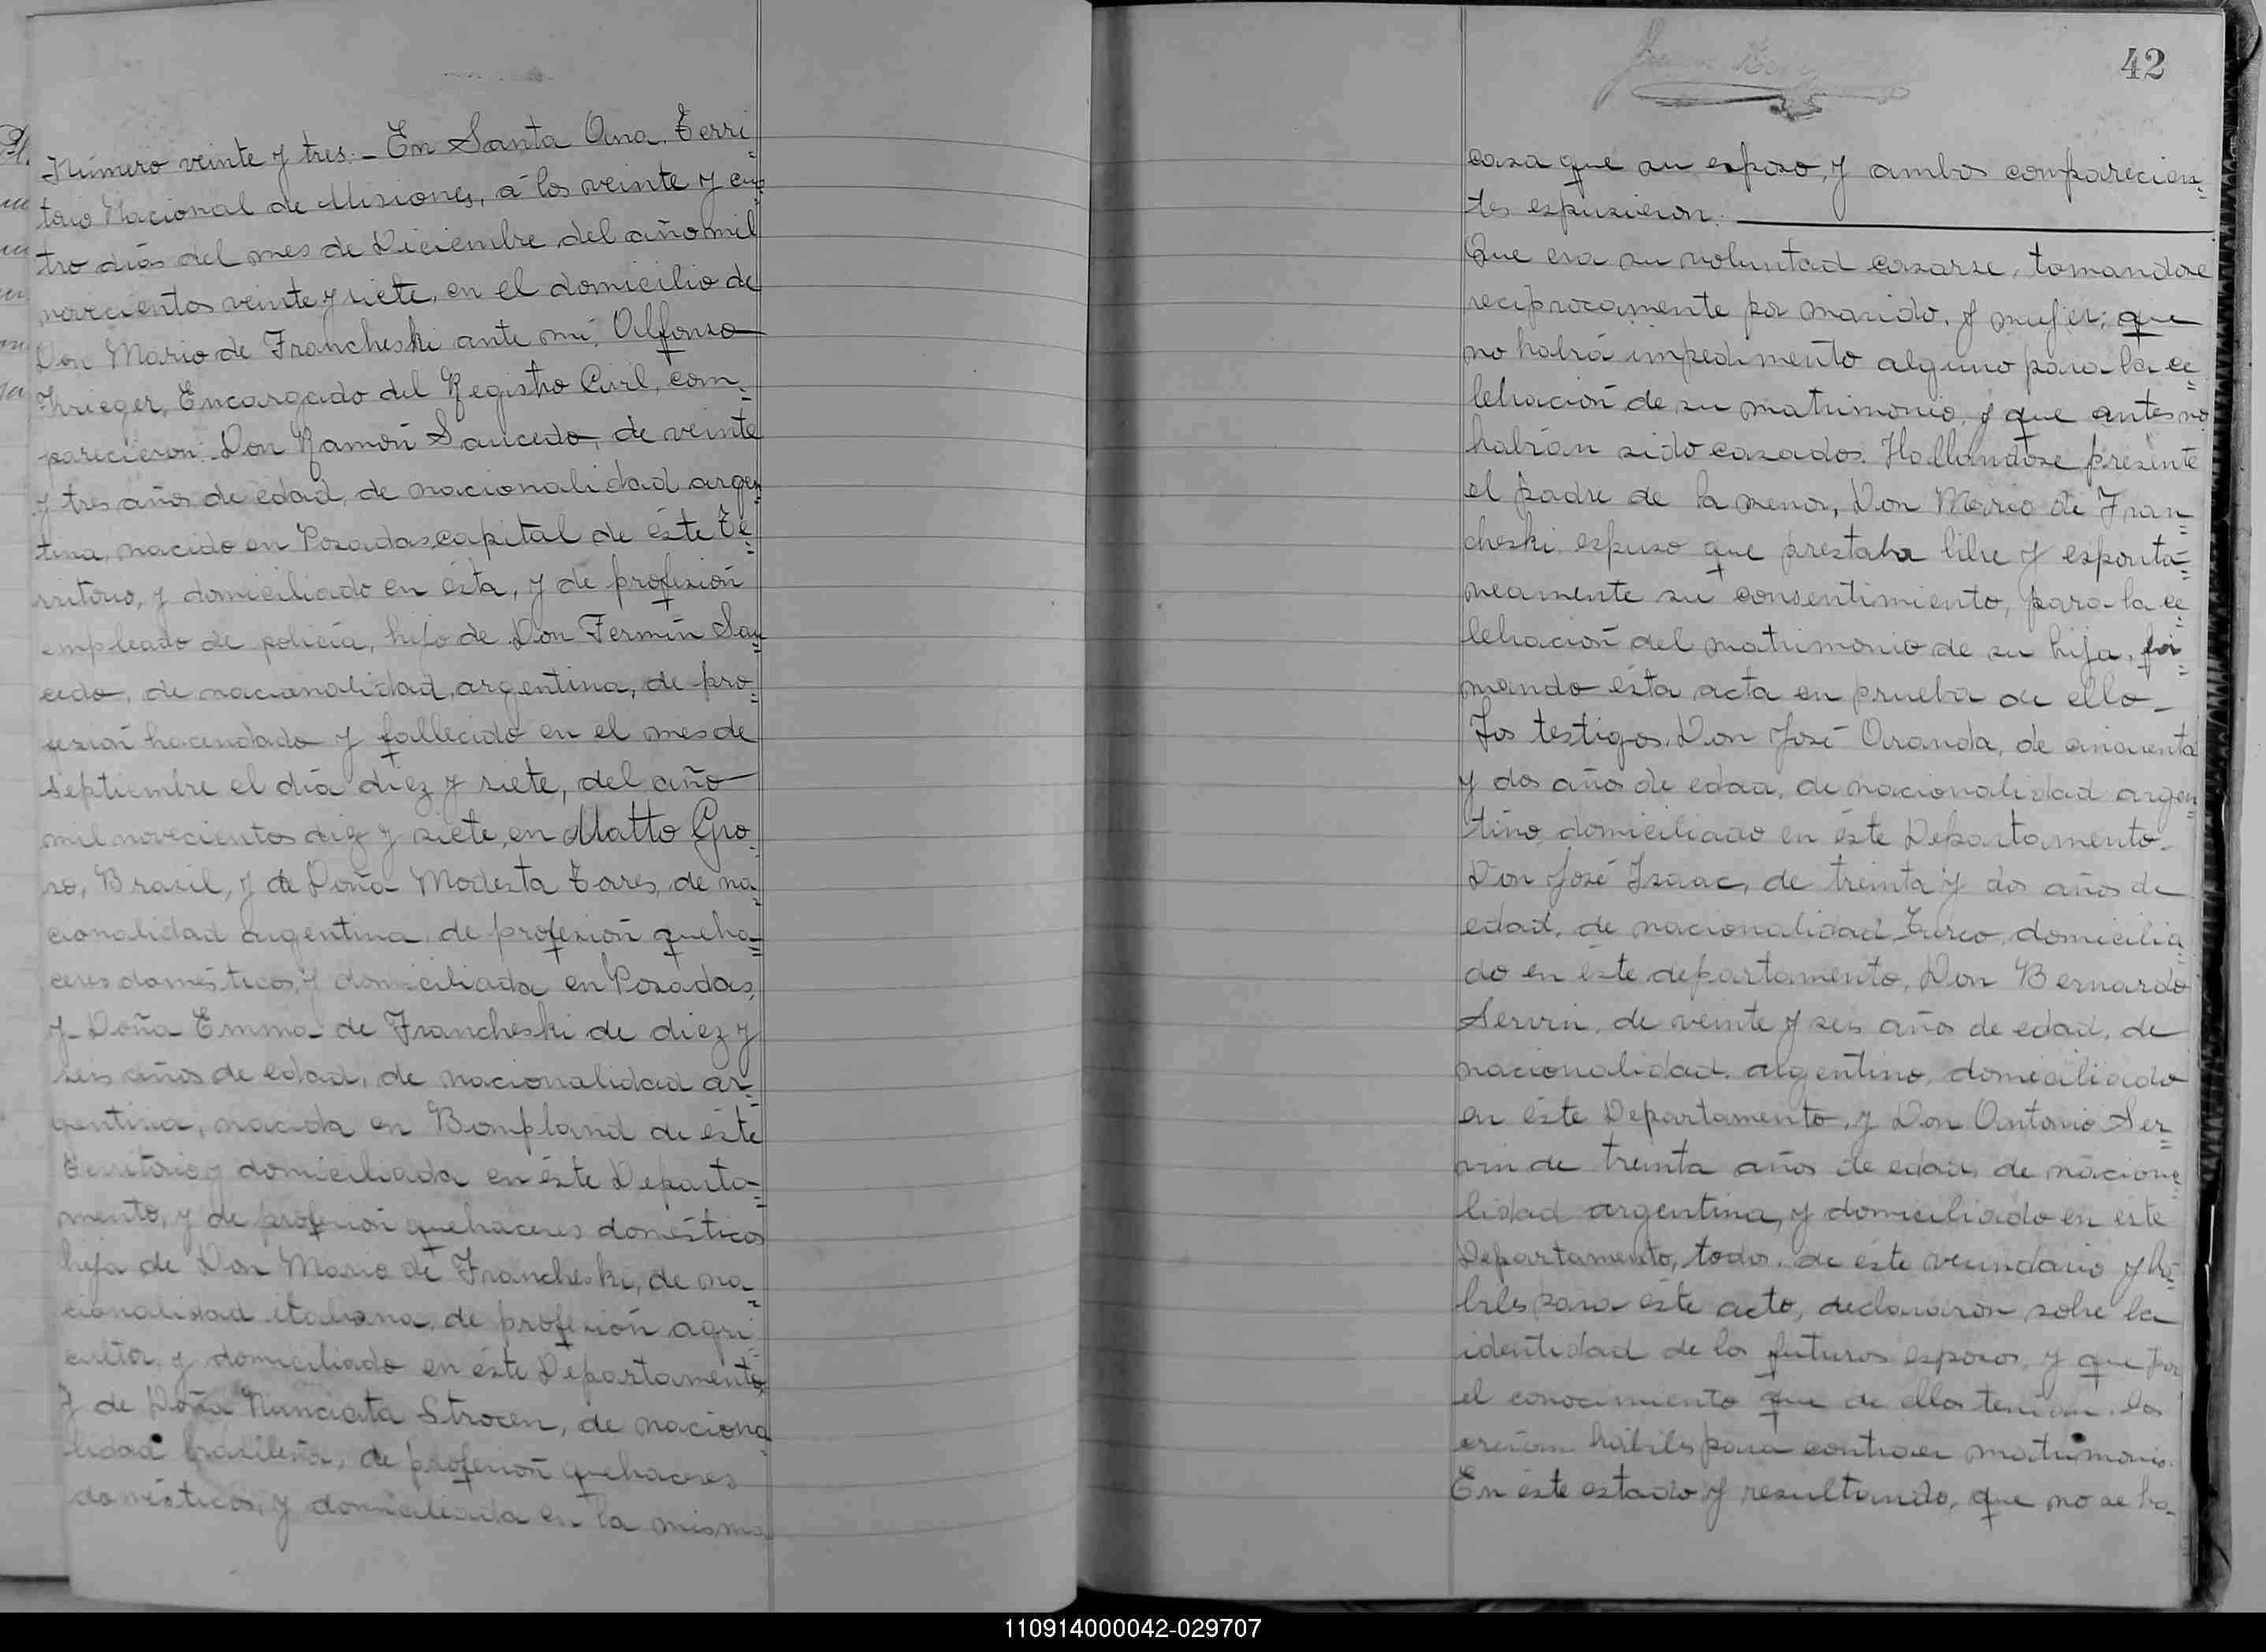 Número veinte y tres.- En Santa Ana, Terri=
torio Nacional de Misiones, á los veinte y cua=
tro días del mes de Diciembre del año mil
novecientos veinte y siete, en el domicilio de
Don Mario de Francheski ante mí, Alfonso
Krieger, Encargado del Registro Civil, com=
parecieron: Don Ramón Saucedo, de veinte
y tres años de edad, de nacionalidad argen=
tina, nacido en Posadas, capital de éste Te=
rritorio, y domiciliado en ésta, y de profesión
empleado de policía, hijo de Don Fermín Sau=
cedo, de nacionalidad, argentina, de pro=
fesión hacendado y fallecido en el mes de
Septiembre el día diez y siete, del año
mil novecientos diez y siete, en Matto Gro=
so, Brasil, y de Doña Modesta Torres, de na=
cionalidad argentina, de profesión queha=
ceres domésticos, y domiciliada en Posadas,
y Doña Emma de Francheski de diez y
seis años de edad, de nacionalidad ar=
gentina, nacida en Bompland de éste
Territorio y domiciliada en éste Departa=
mento, y de profesión quehaceres domésticos
hija de Don Mario de Francheski, de na=
cionalidad italiana, de profesión agri=
cultor, y domiciliado en éste Departamento,
y de Doña Nunciata Strocen, de naciona=
lidad brasileña, de profesión quehaceres
domésticos, y domiciliada en la misma
42
casa que su esposo, y ambos comparecien=
tes espusieron:
Que era su voluntad casarse, tomandose
reciprocamente por marido, y mujer; que
no habrá impedimento alguno para la ce=
lebración de su matrimonio, y que antes no
habían sido casados. Hallandose presente
el padre de la menor, Don Mario de Fran=
cheski espuso que prestaba libre y espontá=
neamente su consentimiento, para la ce=
lebración del matrimonio de su hija, fir=
mando ésta acta en prueba de ello-
Los testigos, Don José Aranda, de cincuenta
y dos años de edad, de nacionalidad argen=
tino, domiciliado en éste Departamento.
Don José Isaac, de treinta y dos años de
edad, de nacionalidad Turco, domicilia=
do en éste departamento, Don Bernardo
Servin, de veinte y seis años de edad, de
nacionalidad argentino, domiciliado
en éste Departamento, y Don Antonio Ser=
vin de treinta años de edad, de naciona=
lidad argentina, y domiciliado en este
Departamento, todos, de éste vecindario y há=
biles para éste acto, declararon sobre la
identidad de los futuros esposos, y que por
el conocimiento que de ellos tenían los
creían hábiles para contraer matrimonio.
En éste estado y resultando, que no se ha=
110914000042-029707